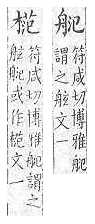 舧
符咸切博雅舧
謂之舷文一
符咸切博雅舧謂之
舷舧或作文一